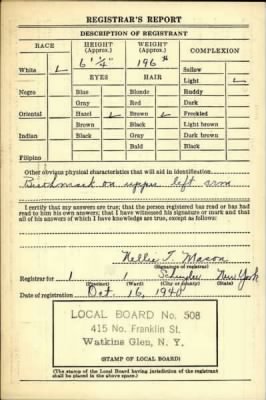 REGISTRAR'S REPORT
DESCRIPTION OF REGISTRANT
RACE HEIGHT (Approx.) WEIGHT (Approx.) COMPLEXION
6' ¼" 196 #
White ✓ Sallow
EYES HAIR Light ✓
Negro Blue Blonde Ruddy
Gray Red Dark
Oriental Hazel ✓ Brown ✓ Freckled
Brown Black Light brown
Indian Black Gray Dark brown
Bald Black
Filipino
Other obvious physical characteristics that will aid in identification
Birthmark on upper left arm
I certify that my answers are true; that the person registered has read or has had
read to him his own answers; that I have witnessed his signature or mark and that
all of his answers of which I have knowledge are true, except as follows:
Nellie T. Mason
(Signature of registrar)
Registrar for 1 1 Schuyler New York
(Precinct) (Ward) (City or county) (State)
Date of registration Oct. 16, 1940
LOCAL BOARD No. 508
415 No. Franklin St.
Watkins Glen, N. Y.
(STAMP OF LOCAL BOARD)
(The stamp of the Local Board having jurisdiction of the registrant
shall be placed in the above space.)